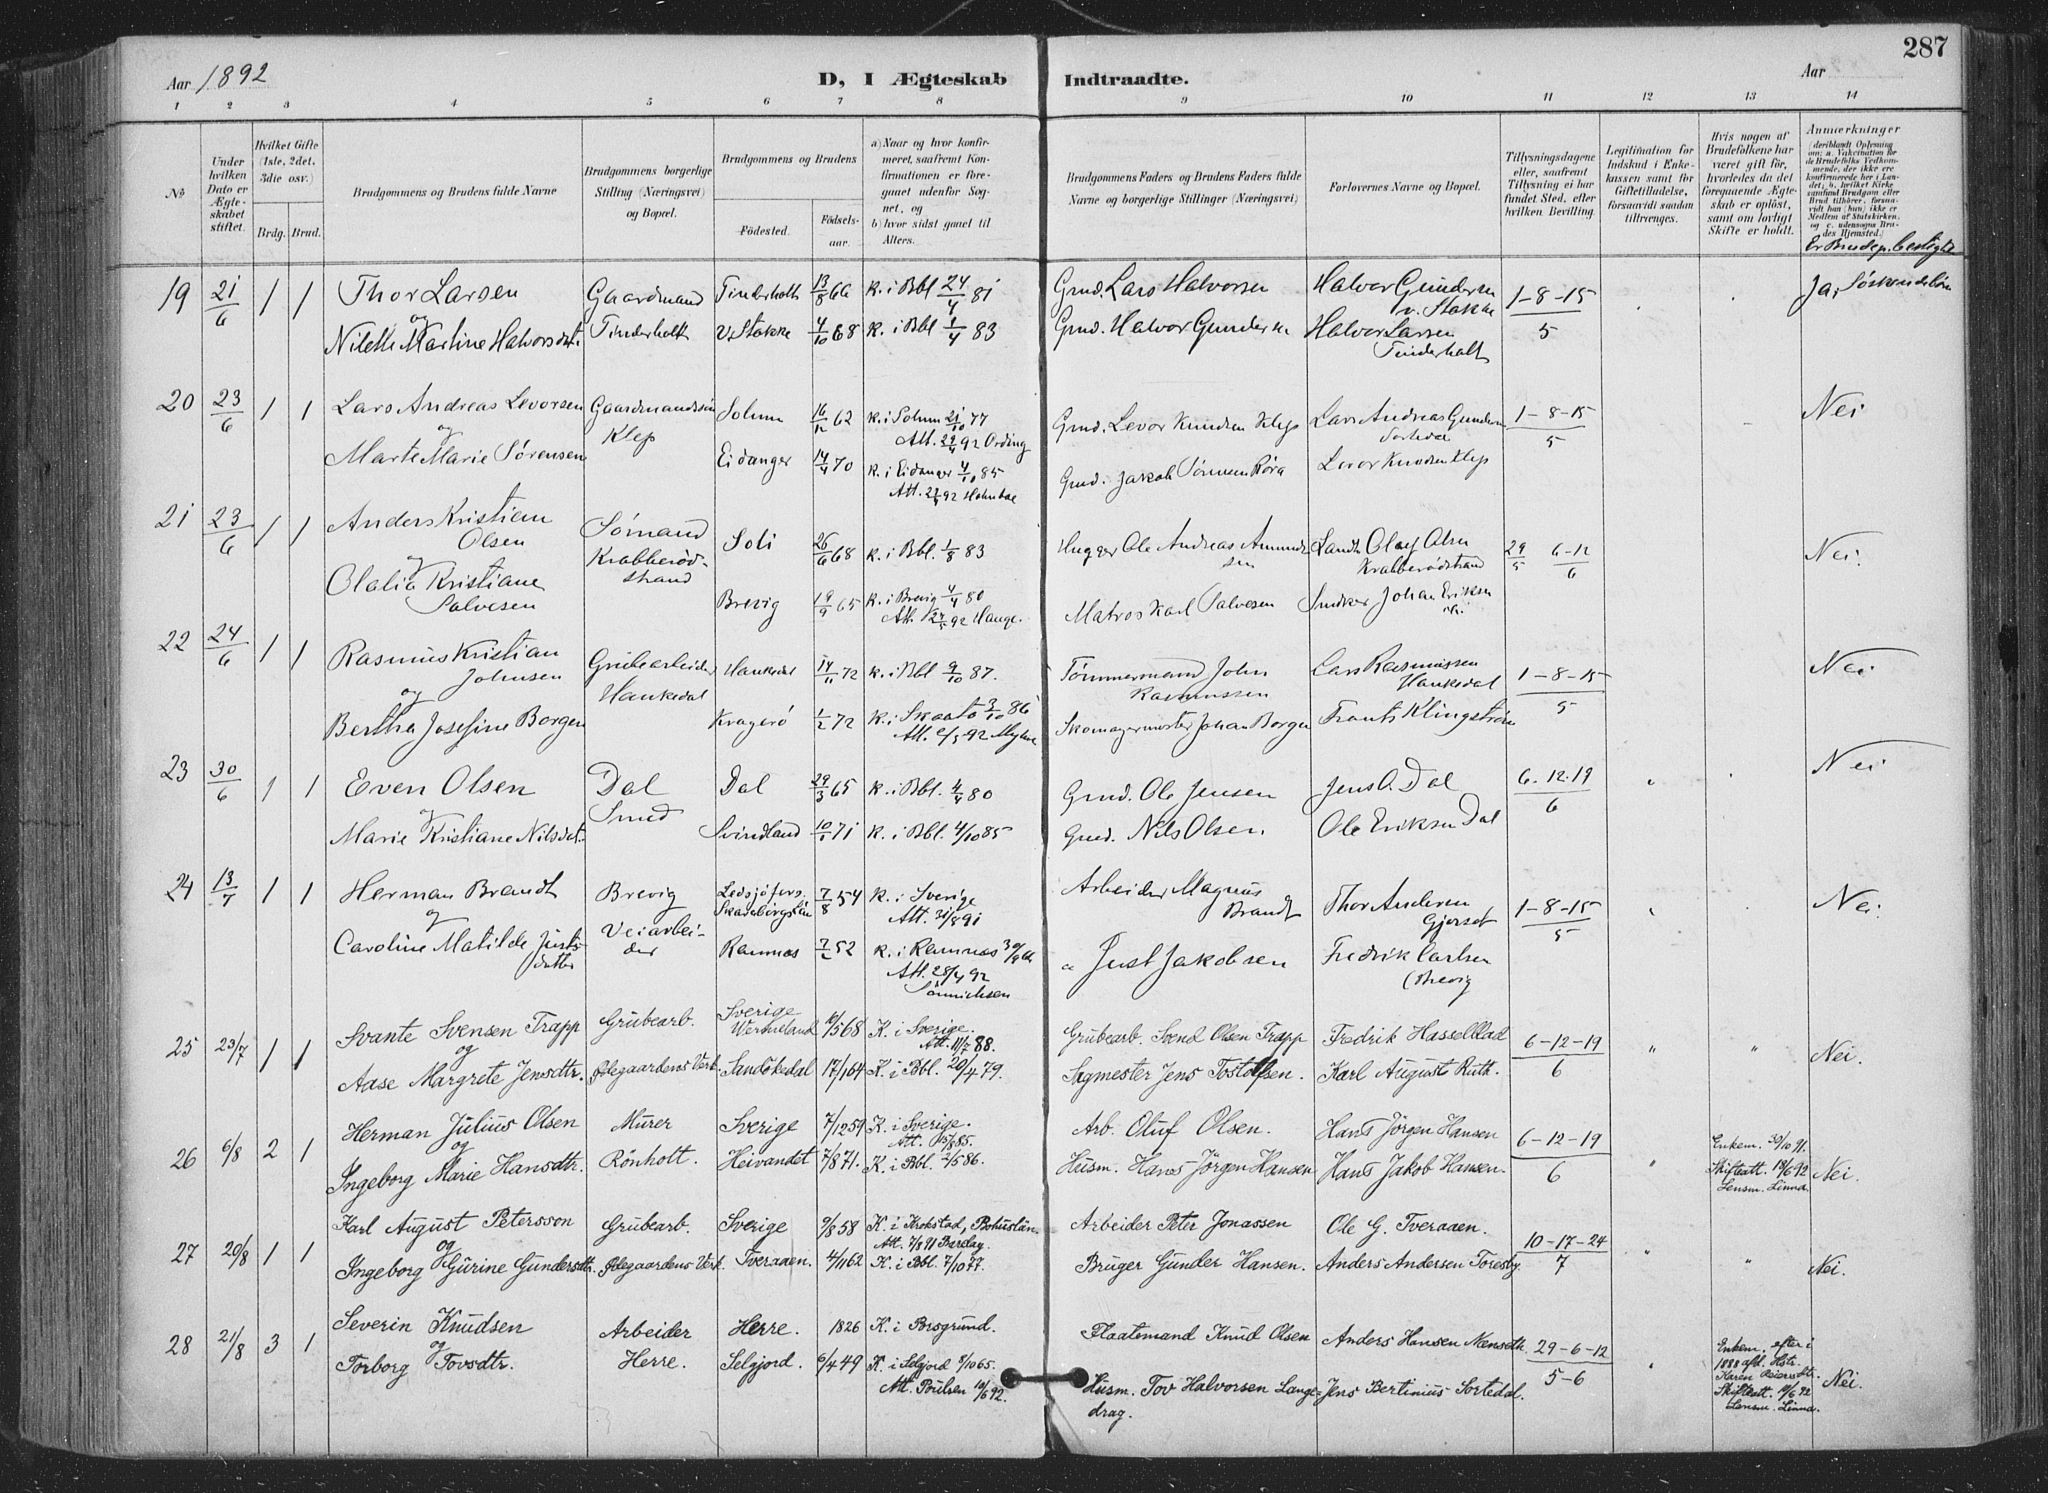 287
Aar 1892
D, I Ægteskab Indtraadte.
Aar
1 2 3 4 5 6 7 8 9 10 11 12 13 14
No
Under hvilken Dato er Ægteskabet stiftet.
Hvilket Gifte (1ste, 2det, 3die osv.)
Brdg. Brud.
Brudgommens og Brudens fulde Navne
Brudgommens borgerlige Stilling (Næringsvei) og Bopæl.
Brudgommens og Brudens
Födested. Födselsaar.
a) Naar og hvor konfirmeret, saafremt Konfirmationen er foregaaet udenfor Sognet, og
b) hvor sidst gaaet til Alters.
Brudgommens Faders og Brudens Faders fulde Navne og borgerlige Stillinger (Næringsvei)
Forlovernes Navne og Bopæl.
Tillysningsdagene eller, saafremt Tillysning ei har fundet Sted, efter hvilken Bevilling.
Legitimation for Indskud i Enkekassen samt for Giftetilladelse, forsaavidt saadan tiltrænges.
Hvis nogen af Brudefolkene har været gift før, hvorledes da det foregaaende Ægteskab er opløst, samt om lovligt Skifte er holdt.
Anmærkninger (deriblandt Oplysning om: a. Vaccination for de Brudefolks Vedkommende, der ikke ere konfirmerede her i Landet; b. hvilket Kirkesamfund Brudgom eller Brud tilhører, forsaavidt han (hun) ikke er Medlem af Statskirken, og c. udensogns Brudes Hjemsted.)
Er Brudep. beslegtede
19 21/6 1 1 Thor Larsen Gaardmand Tinderholt 13/8 66 K. i Bbl 24/4 81 Gmd. Lars Halvorsen Halvor Gundersen v. Stokke 1-8-15 Ja, Søskendebørn
og
Nilette Martine Halvorsdtr. Tinderholt V. Stokke 4/10 68 K. i Bbl 1/4 83 Gmd. Halvor Gundersen Halvor Larsen Tinderholt 5
20 23/6 1 1 Lars Andreas Levorsen Gaardmandssön Solum 16/12 62 K. i Solum 21/10 77 Gmd. Levor Knudsen Klep Lars Andreas Gundersen Sortedal 1-8-15 Nei
og Klep Att. 22/4 92 Ording 5
Marte Marie Sørensen Eidanger 14/4 70 K. i Eidanger 4/10 85 Gmd. Jakob Sørensen Røra Levor Knudsen Klep
Att. 22/4 92 Holmboe
21 23/6 1 1 Anders Kristian Olsen Sømand Soli 26/6 68 K. i Bbl. 1/8 83 Hugger Ole Andreas Amundsen Landh. Olaf Olsen Krabberødstrand 29/5 6-12/6 Nei.
og Krabberødstrand
Olalia Kristiane Salvesen Brevig 19/9 65 K. i Brevig 4/4 80 Matros Karl Salvesen Snedker Johan Eriksen
Att. 27/5 92 Hauge.
22 24/6 1 1 Rasmus Kristian Johnsen Grubearbeider Hankedal 14/11 72 K. i Bbl 9/10 87. Tømmermand John Rasmussen Lars Rasmussen Hankedal 1-8-15 Nei
og Hankedal 5
Bertha Josefine Borgen Kragerø 1/2 72 K. i Skaatø 3/10 86 Skomagermester Johan Borgen Frants Klingström
23 30/6 1 1 Even Olsen Dal Dal 29/3 65 K. i Bbl. 4/4 80 Gmd. Ole Jensen Jens O. Dal 6-12-19 Nei
og Smed 6
Marie Kristiane Nilsdat. Svindland 10/1 71 K. i Bbl. 4/10 85 Gmd. Nils Olsen Ole Eriksen Dal
24 13/7 1 1 Herman Brandt Brevig Ledsjöfors Skaraborgslän 7/8 54 K. i Sverige Arbeider Magnus Brandt Thor Andersen Gjerset 1-8-15 Nei.
og Veiarbeider Att. 31/8 91 5
Caroline Matilde Justsdatter Ramnæs 7/2 52 K. i Ramnæs Just Jakobsen Fredrik Carlsen Brevig
Att. 28/4 92 Sönnichsen
25 23/7 1 1 Svante Svensen Trapp Grubearb. Sverige Wermeland 10/5 68 K. i Sverige. Grubearb. Svend Olsen Trapp Fredrik Hasselblad 6-12-19 " " Nei.
og Att. 11/7 88. 6
Aase Margrete Jensdtr. Ødegaardens Verk Sandökedal 17/1 64 K. i Bbl. 20/4 79. Sagmester Jens Tostofsen. Karl August Ruth.
26 6/8 2 1 Herman Julius Olsen Murer Sverige 7/12 59 K. i Sverige. Arb. Oluf Olsen. Hans Jörgen Hansen 6-12-19 " Enkem. 20/10 91. Nei.
og Att. 15/8 85. 6 Skifteatt. 18/6 92
Ingeborg Marie Hansdtr. Rönholt. Heivandet 7/8 71. K. i Bbl. 2/5 86. Husm. Hans Jörgen Hansen Hans Jakob Hansen. Lensm. Linna.
27 20/8 1 1 Karl August Petersson Grubearb. Sverige 9/8 58 K. i Krokstad, Bohuslän. Arbeider Peter Jonassen Ole G. Tveraaen. 10-17-24 " " Nei.
og Att. 7/8 91 7
Ingeborg Gurine Gundersdtr. Ødegaardens Verk. Tveraaen. 4/11 62 K. i Bbl. 7/10 77. Bruger Gunder Hansen. Anders Andersen Toresby.
28 21/8 3 1 Severin Knudsen Arbeider Herre. 1826 K. i Porsgrund. Flaatemand Knud Olsen Anders Hansen 29-6-12 " Enkem. efter i 1888 afd. Hstr. Karen Reiersdtr. Nei.
og 5-6 Skifteatt. 18/6 92
Torborg Tovsdtr. Herre. Selgjord. 6/4 49 K. i Selgjord 8/10 65. Husm. Tov Halvorsen Langedrag. Jens Bertinius Sortedal. Lensm. Linna.
Att. Poulsen 18/6 92.